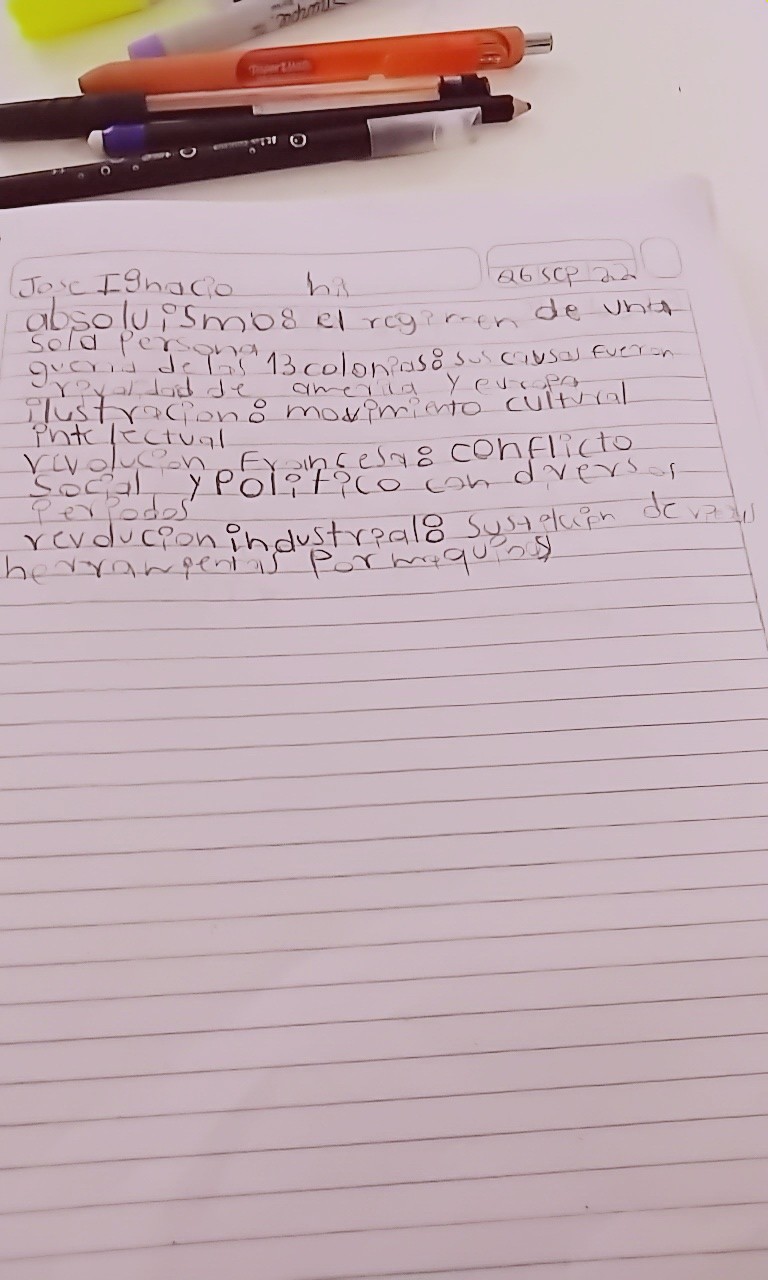 Jose Ignacio his
26 sep 22
absoluismo: el regimen de una
sola persona
guerra de las 13 colonias: sus causas fueron
rivalidad de america y europa
ilustracion: movimiento cultural
intelectual
revolucion francesa: conflicto
social y politico con diversos
periodos
revolucion industrial: de
herramientas por maquinas